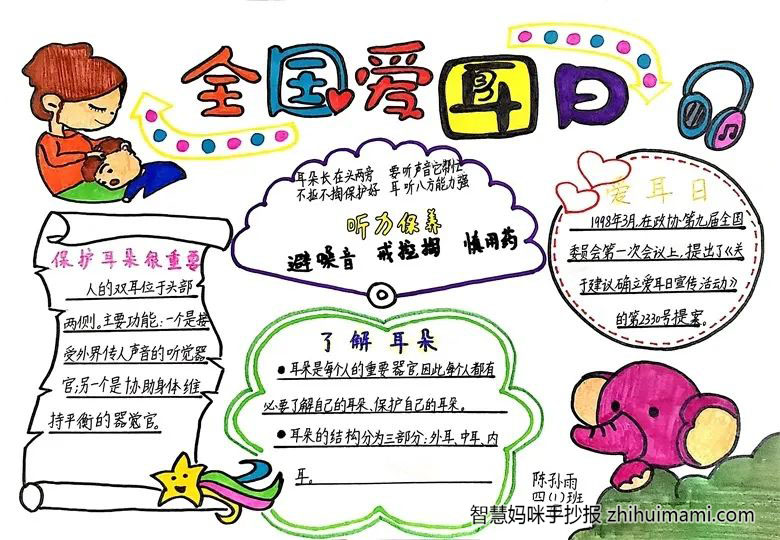 全国爱耳日
耳朵长在头两旁 要听声音它帮忙
不扯不掏保护好 耳听八方能力强
听力保养
避噪音 戒挖掏 慎用药
爱耳日
1998年3月,在政协第九届全国
委员会第一次会议上,提出了《关
于建议确立爱耳日宣传活动》
的第2330号提案。
保护耳朵很重要
人的双耳位于头部
两侧。主要功能:一个是接
受外界传人声音的听觉器
官;另一个是协助身体维
持平衡的器觉官。
了解耳朵
●耳朵是每个人的重要器官,因此,每个人都有
必要了解自己的耳朵、保护自己的耳朵。
●耳朵的结构分为三部分:外耳、中耳、内
耳。
陈孙雨
四(1)班
智慧妈咪手抄报 zhihuimami.com